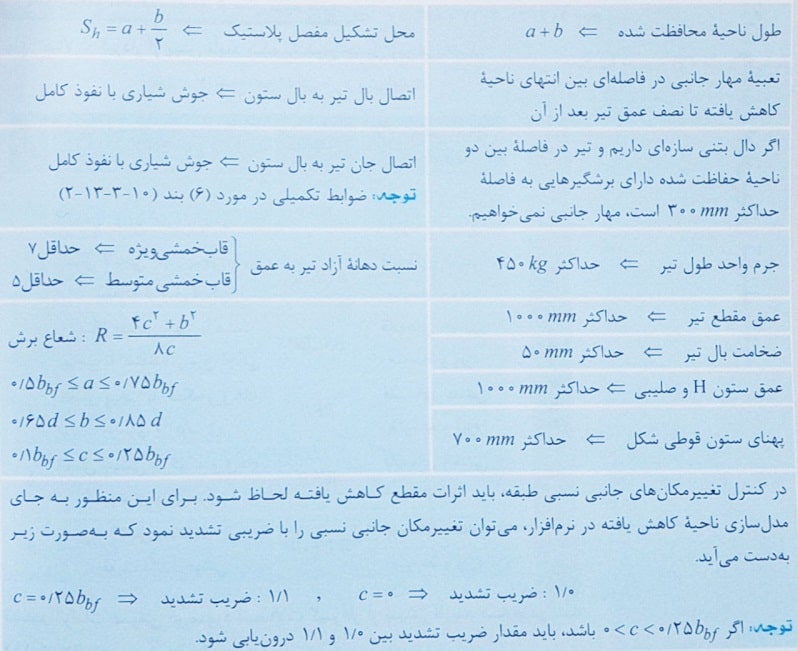 طول ناحیهٔ محافظت شده ⇐ a + b
محل تشکیل مفصل پلاستیک ⇐ S_h = a + b/۲
تعبیهٔ مهار جانبی در فاصله‌ای بین انتهای ناحیهٔ
کاهش یافته تا نصف عمق تیر بعد از آن
اتصال بال تیر به بال ستون ⇐ جوش شیاری با نفوذ کامل
اگر دال بتنی سازه‌ای داریم و تیر در فاصلهٔ بین دو
ناحیهٔ حفاظت شده دارای برشگیرهایی به فاصلهٔ
حداکثر ۳۰۰ mm است، مهار جانبی نمی‌خواهیم.
اتصال جان تیر به بال ستون ⇐ جوش شیاری با نفوذ کامل
توجه: ضوابط تکمیلی در مورد (۶) بند (۱۰-۳-۱۳-۲)
جرم واحد طول تیر ⇐ حداکثر ۴۵۰ kg
نسبت دهانهٔ آزاد تیر به عمق
قاب‌خمشی‌ویژه ⇐ حداقل ۷
قاب‌خمشی‌متوسط ⇐ حداقل ۵
عمق مقطع تیر ⇐ حداکثر ۱۰۰۰ mm
ضخامت بال تیر ⇐ حداکثر ۵۰ mm
عمق ستون H و صلیبی ⇐ حداکثر ۱۰۰۰ mm
پهنای ستون قوطی شکل ⇐ حداکثر ۷۰۰ mm
شعاع برش : R = (۴c^۲ + b^۲)/۸c
۰/۵b_bf ≤ a ≤ ۰/۷۵b_bf
۰/۶۵d ≤ b ≤ ۰/۸۵d
۰/۱b_bf ≤ c ≤ ۰/۲۵b_bf
در کنترل تغییرمکان‌های جانبی نسبی طبقه، باید اثرات مقطع کاهش یافته لحاظ شود. برای این منظور به جای
مدل‌سازی ناحیهٔ کاهش یافته در نرم‌افزار، می‌توان تغییرمکان جانبی نسبی را با ضریبی تشدید نمود که به‌صورت زیر
به‌دست می‌آید.
c = ۰/۲۵b_bf ⇒ ضریب تشدید : ۱/۱ , c = ۰ ⇒ ضریب تشدید : ۱/۰
توجه: اگر ۰ < c < ۰/۲۵b_bf باشد، باید مقدار ضریب تشدید بین ۱/۰ و ۱/۱ درون‌یابی شود.